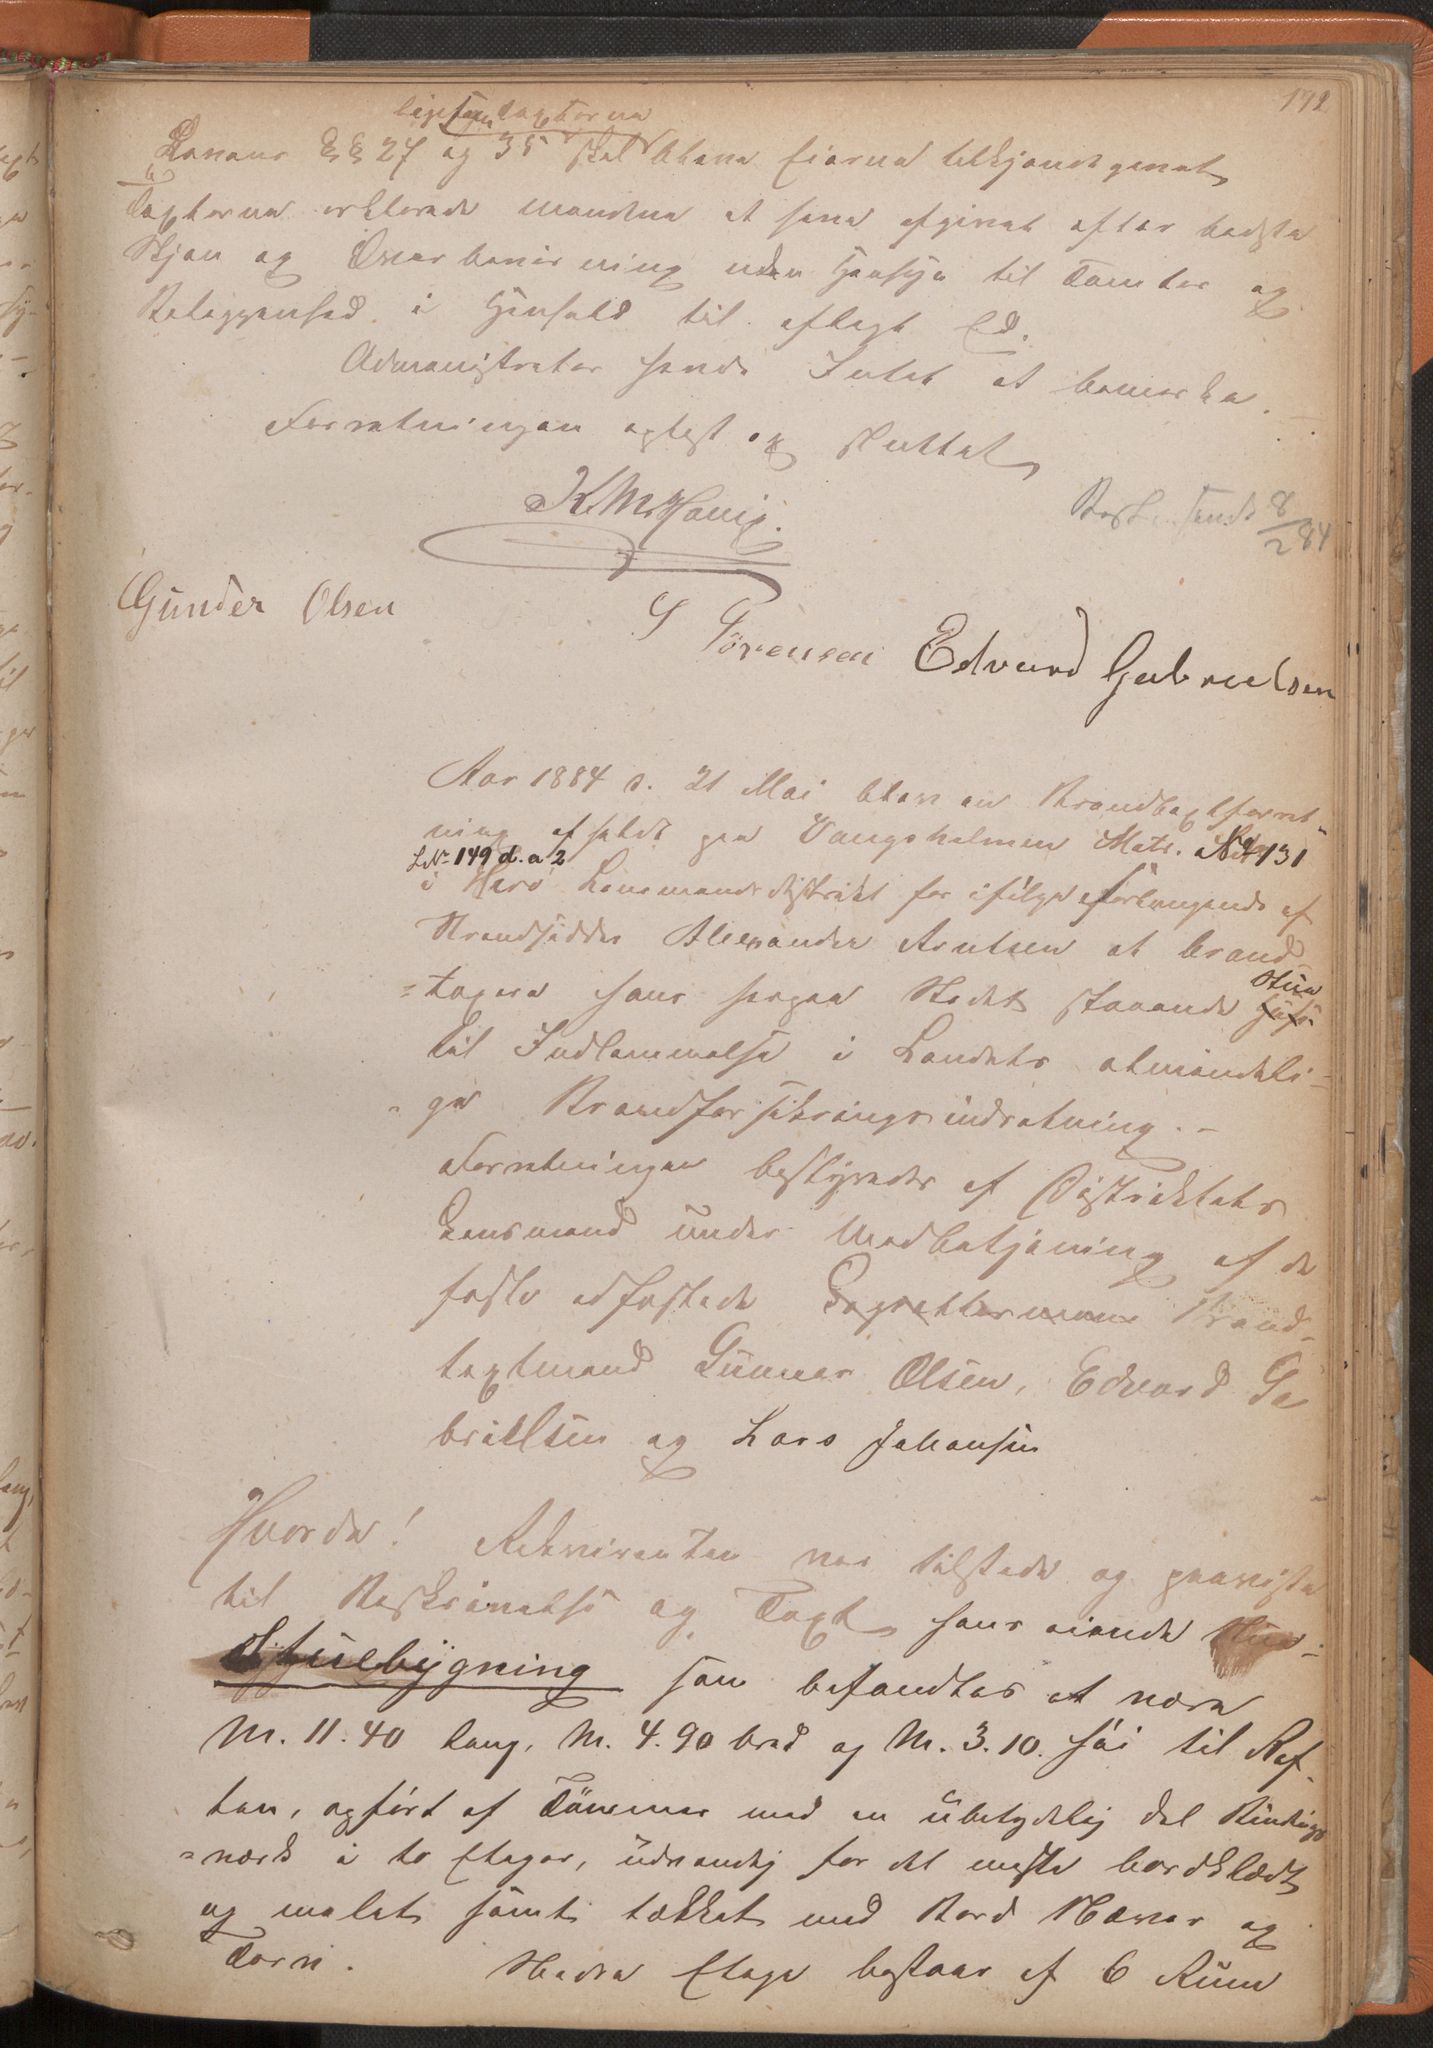 192
ligesom taxterne
Lovens §§ 27 og 35 skal blevne Eierne tilkjendegivet
Taxterne erklærede mændene at have afgivet efter bedste
Skjøn og Overbeviisning uden Hensyn til Tomter og
Beliggenhed i Henhold til aflagt Ed.
Administrator havde Intet at bemærke.
Forretningen oplæst og sluttet
K M Havig.
Besk. sendt 8/2 84
Gunder Olsen
S Sörensen Edvard Gabrielsen
Aar 1884 d. 21 Mai blev en Brandtaxtforret-
ning afholdt paa Vangsholmen Matr. No 131
LNo 149 d. a 2
i Herö Lensmandsdistrikt for ifölge Forlangende af
Strandsidder Alexander Arntsen at brand-
=taxere hans herpaa Stedet staaende Stue
til Indlemmelse i Landets almindeli-
=ge Brandforsikringsindretning. -
Forretningen bestyredes af Distriktets
Lensmand under Medbetjening af de
faste edfæstede Lagrettesmænd Brand-
taxtmænd Gunner Olsen, Edvard Ga
brielsen og Lars Johansen
Hvorda! Rekvirenten var tilstede og paaviste
til Beskrivelse og Taxt hans eiende Stue-
Stuebygning som befandtes at være
M. 11.40 lang, M. 4.90 bred og M. 3.10. høi til Raf-
ten, opfört af Tömmer med en übetydelig Del Bindings
=værk i to Etager, udvendig for det meste bordklædt
og malet samt tækket med Bord Næver og
Torv. Nedre Etage bestaar af 6 Rum